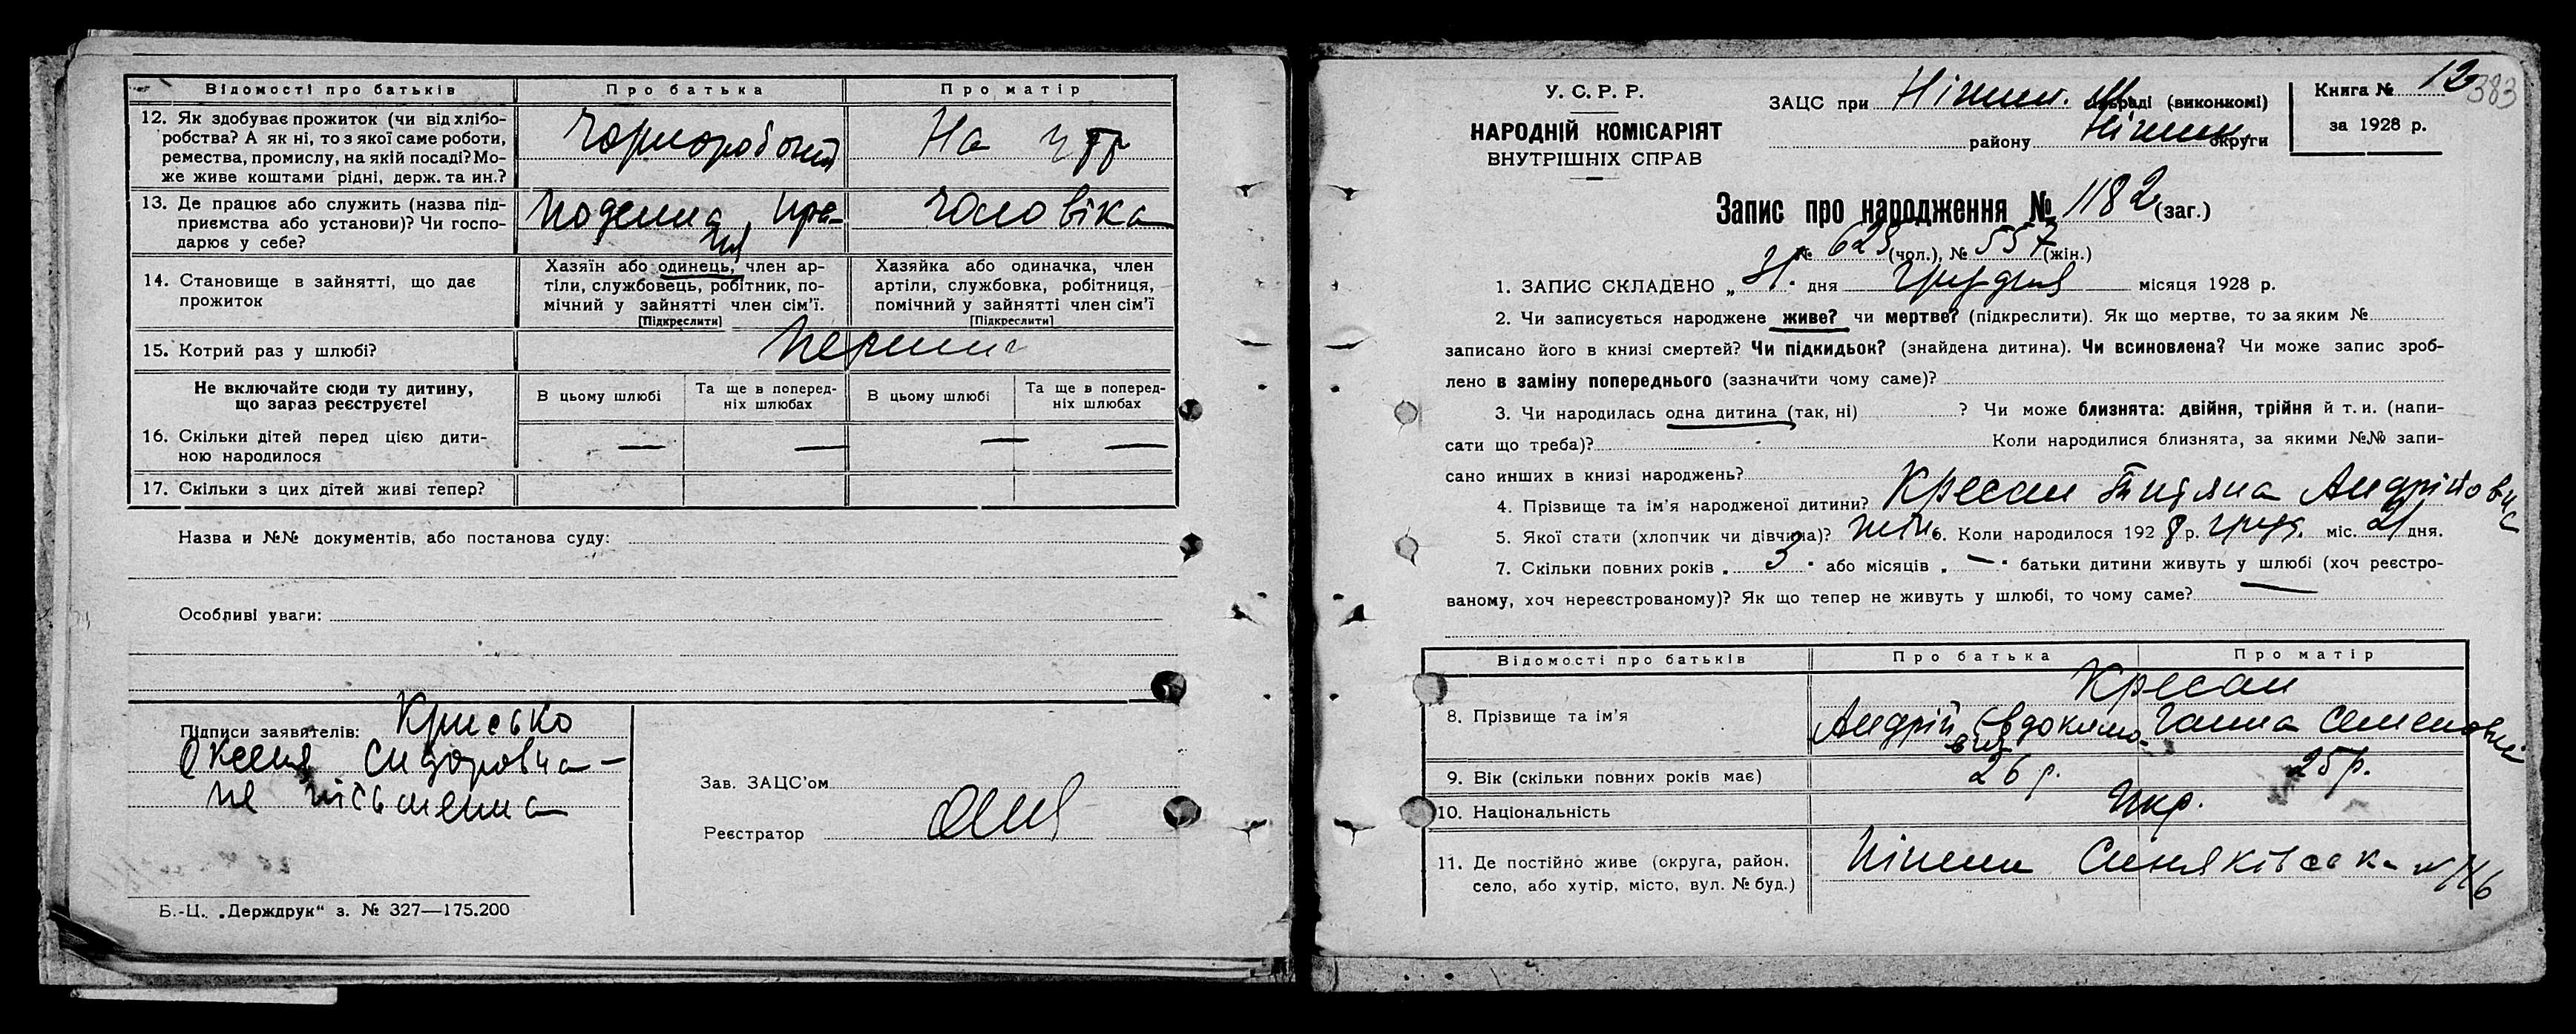 Відомості про батьків
Про батька
Про матір
12. Як здобуває прожиток (чи від хлібо-
робства? А як ні, то з якої саме роботи,
ремества, промислу, на якій посаді? Мо-
же живе коштами рідні, держ. та ин.?
Чорноробочий
На утр
13. Де працює або служить (назва під-
приємства або установи)? Чи госпо-
дарює у себе?
Поденна пра-
ця
чоловіка
14. Становище в зайнятті, що дає
прожиток
Хазяїн або одинець, член ар-
тіли, службовець, робітник, по-
мічний у зайнятті член сім’ї.
[Підкреслити]
Хазяйка або одиначка, член
артіли, службовка, робітниця,
помічний у зайнятті член сім’ї
[Підкреслити]
15. Котрий раз у шлюбі?
Не включайте сюди ту дитину,
що зараз реєструєте!
В цьому шлюбі
Та ще в поперед-
ніх шлюбах
В цьому шлюбі
Та ще в поперед-
ніх шлюбах
16. Скільки дітей перед цією дити-
ною народилося
— — — —
17. Скільки з цих дітей живі тепер?
Назва и №№ документів, або постанова суду:
Особливі уваги:
Підписи заявителів: Крисько
Оксеня Сидоровна —
не письменна
Зав. ЗАЦС’ом
Реєстратор
Б.-Ц. „Держдрук“ з. № 327—175.200
У. С. Р. Р.
НАРОДНІЙ КОМІСАРІЯТ
ВНУТРІШНІХ СПРАВ
ЗАЦС при Ніжин. (виконкомі)
району Ніжин. округи
Книга № 12
за 1928 р.
383
Запис про народження № 1182 (заг.)
№ 625 (чол.), № 557 (жін.)
1. ЗАПИС СКЛАДЕНО „ дня грудня місяця 1928 р.
2. Чи записується народжене живе? чи мертве? (підкреслити). Як що мертве, то за яким №
записано його в книзі смертей? Чи підкидьок? (знайдена дитина). Чи всиновлена? Чи може запис зроб-
лено в заміну попереднього (зазначити чому саме)?
3. Чи народилась одна дитина (так, ні) ? Чи може близнята: двійня, трійня й т. и. (напи-
сати що треба)? Коли народилися близнята, за якими №№ запи-
сано инших в книзі народжень?
4. Прізвище та ім’я народженої дитини? Кресан Титяна Андрійовна
5. Якої стати (хлопчик чи дівчина)? жін. 6. Коли народилося 1928 р. груд. міс. 21 дня.
7. Скільки повних років „ 3 " або місяців „ — " батьки дитини живуть у шлюбі (хоч реєстро-
ваному, хоч нереєстрованому)? Як що тепер не живуть у шлюбі, то чому саме? —
Відомості про батьків
Про батька
Про матір
8. Прізвище та ім’я
Кресан
Андрій Євдокимо-
вич
Ганна Семеновна
9. Вік (скільки повних років має)
26 р.
25 р.
10. Національність
Укр.
11. Де постійно живе (округа, район,
село, або хутір, місто, вул. № буд.)
Ніжин Синяківська